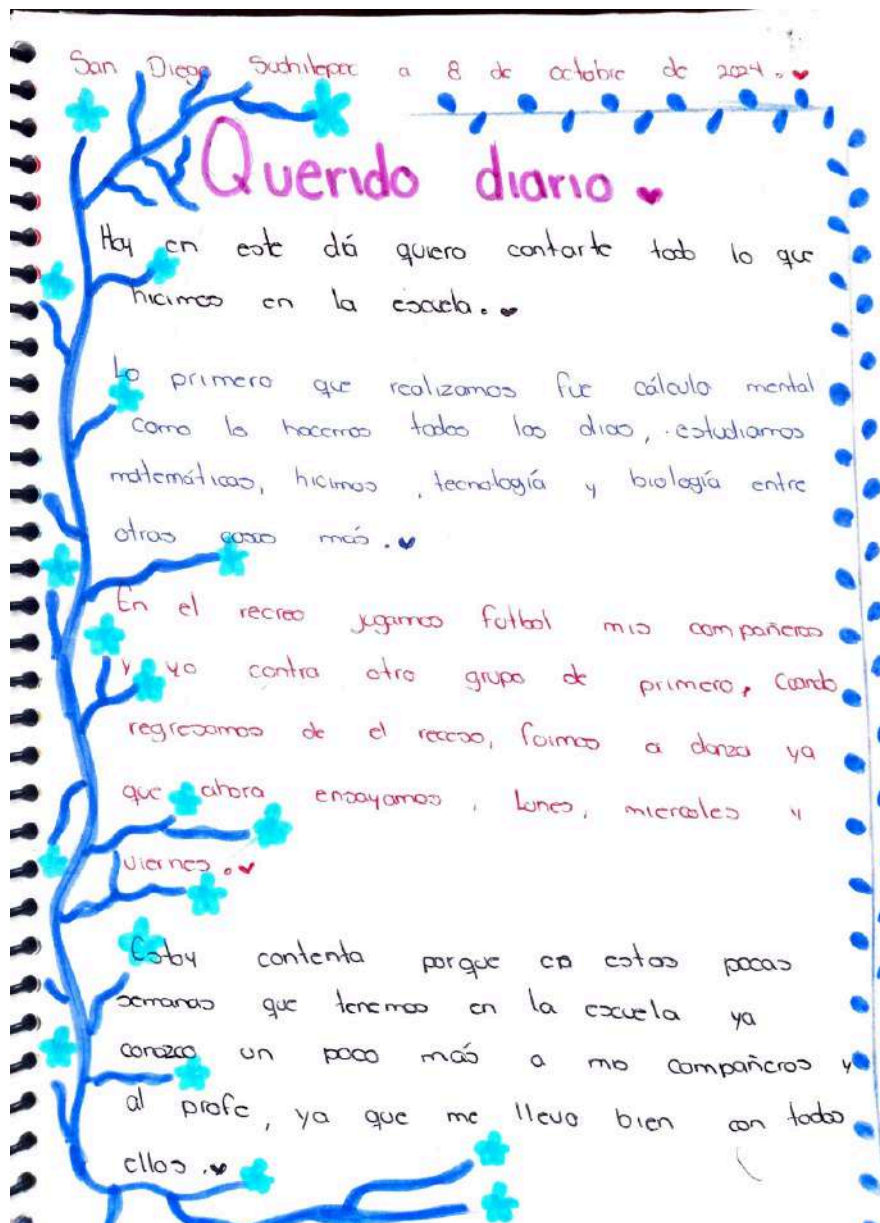 San Diego Suchilepec a 8 de octubre de 2024.
Querido diario
Hoy en este día quiero contarte todo lo que
hicimos en la escuela.
Lo primero que realizamos fue cálculo mental
como lo hacemos todos los dias, estudiamos
matemáticas, hicimos, tecnología y biología entre
otras cosas más.
En el recreo jugamos futbol mis compañeros
y yo contra otro grupo de primero, Cuando
regresamos de el receso, fuimos a danza ya
que ahora ensayamos, lunes, miercoles y
viernes.
Estoy contenta porque en estas pocas
semanas que tenemos en la escuela ya
conozco un poco más a mis compañeros y
al profe, ya que me llevo bien con todos
ellos.